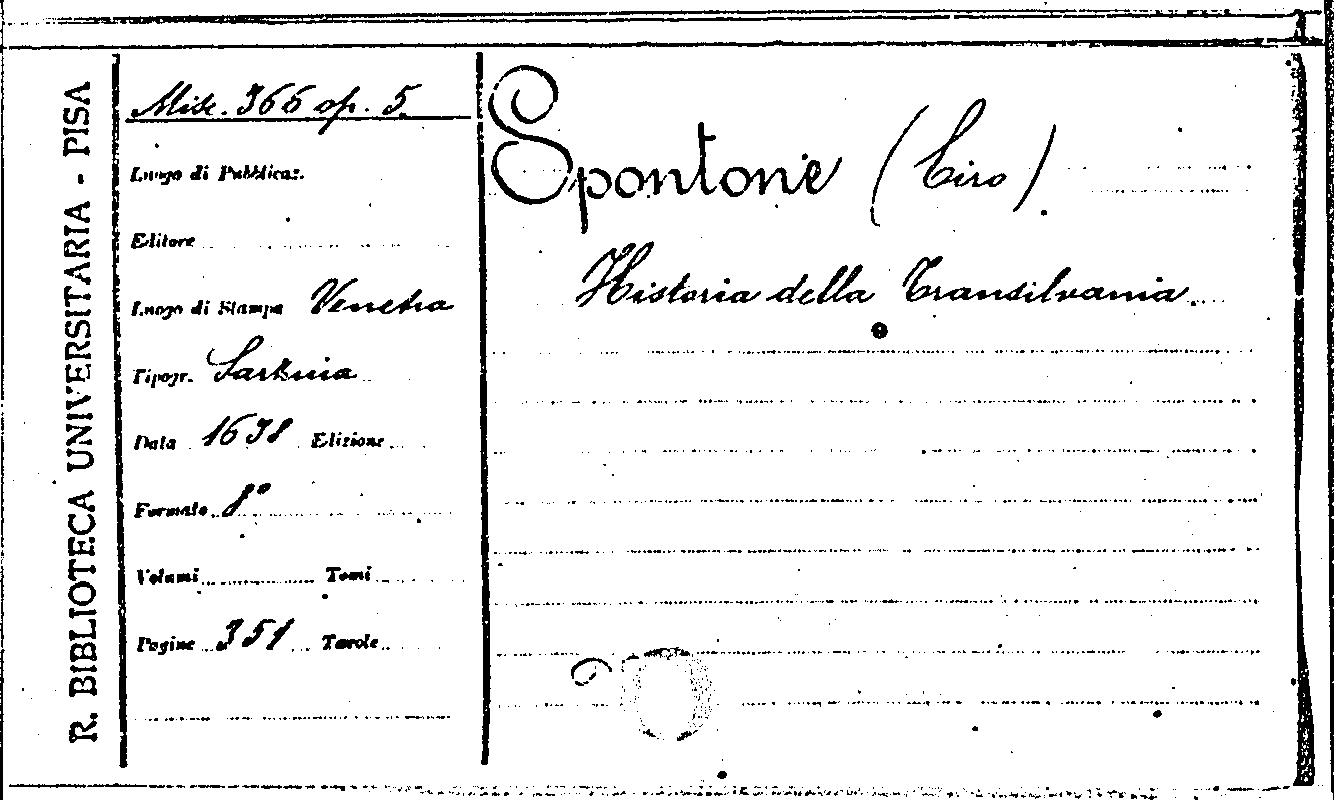 R. BIBLIOTECA UNIVERSITARIA - PISA
Misc. 366 op. 5.
Luogo di Pubblicaz.
Editore
Luogo di Stampa Venetia
Tipogr. Sarzina
Data 1638 Edizione
Formato 8°
Volumi Tomi
Pagine 351 Tavole
Spontone (Ciro)
Historia della Transilvania.